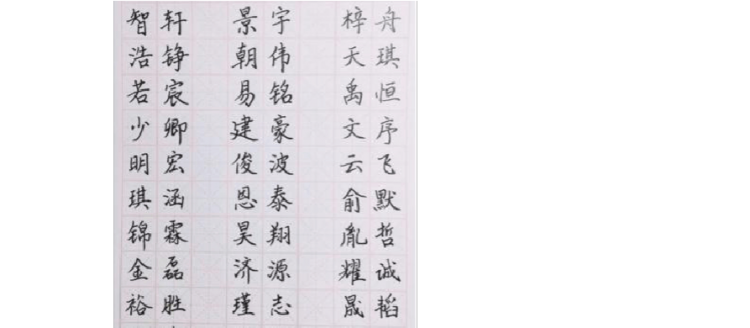 智轩 景宇 梓舟
浩铮 朝伟 天琪
若宸 易铭 禹恒
少卿 建豪 文序
明宏 俊波 云飞
琪涵 恩泰 俞默
锦霖 昊翔 胤哲
金磊 济源 耀诚
裕胜 瑾志 晟韬